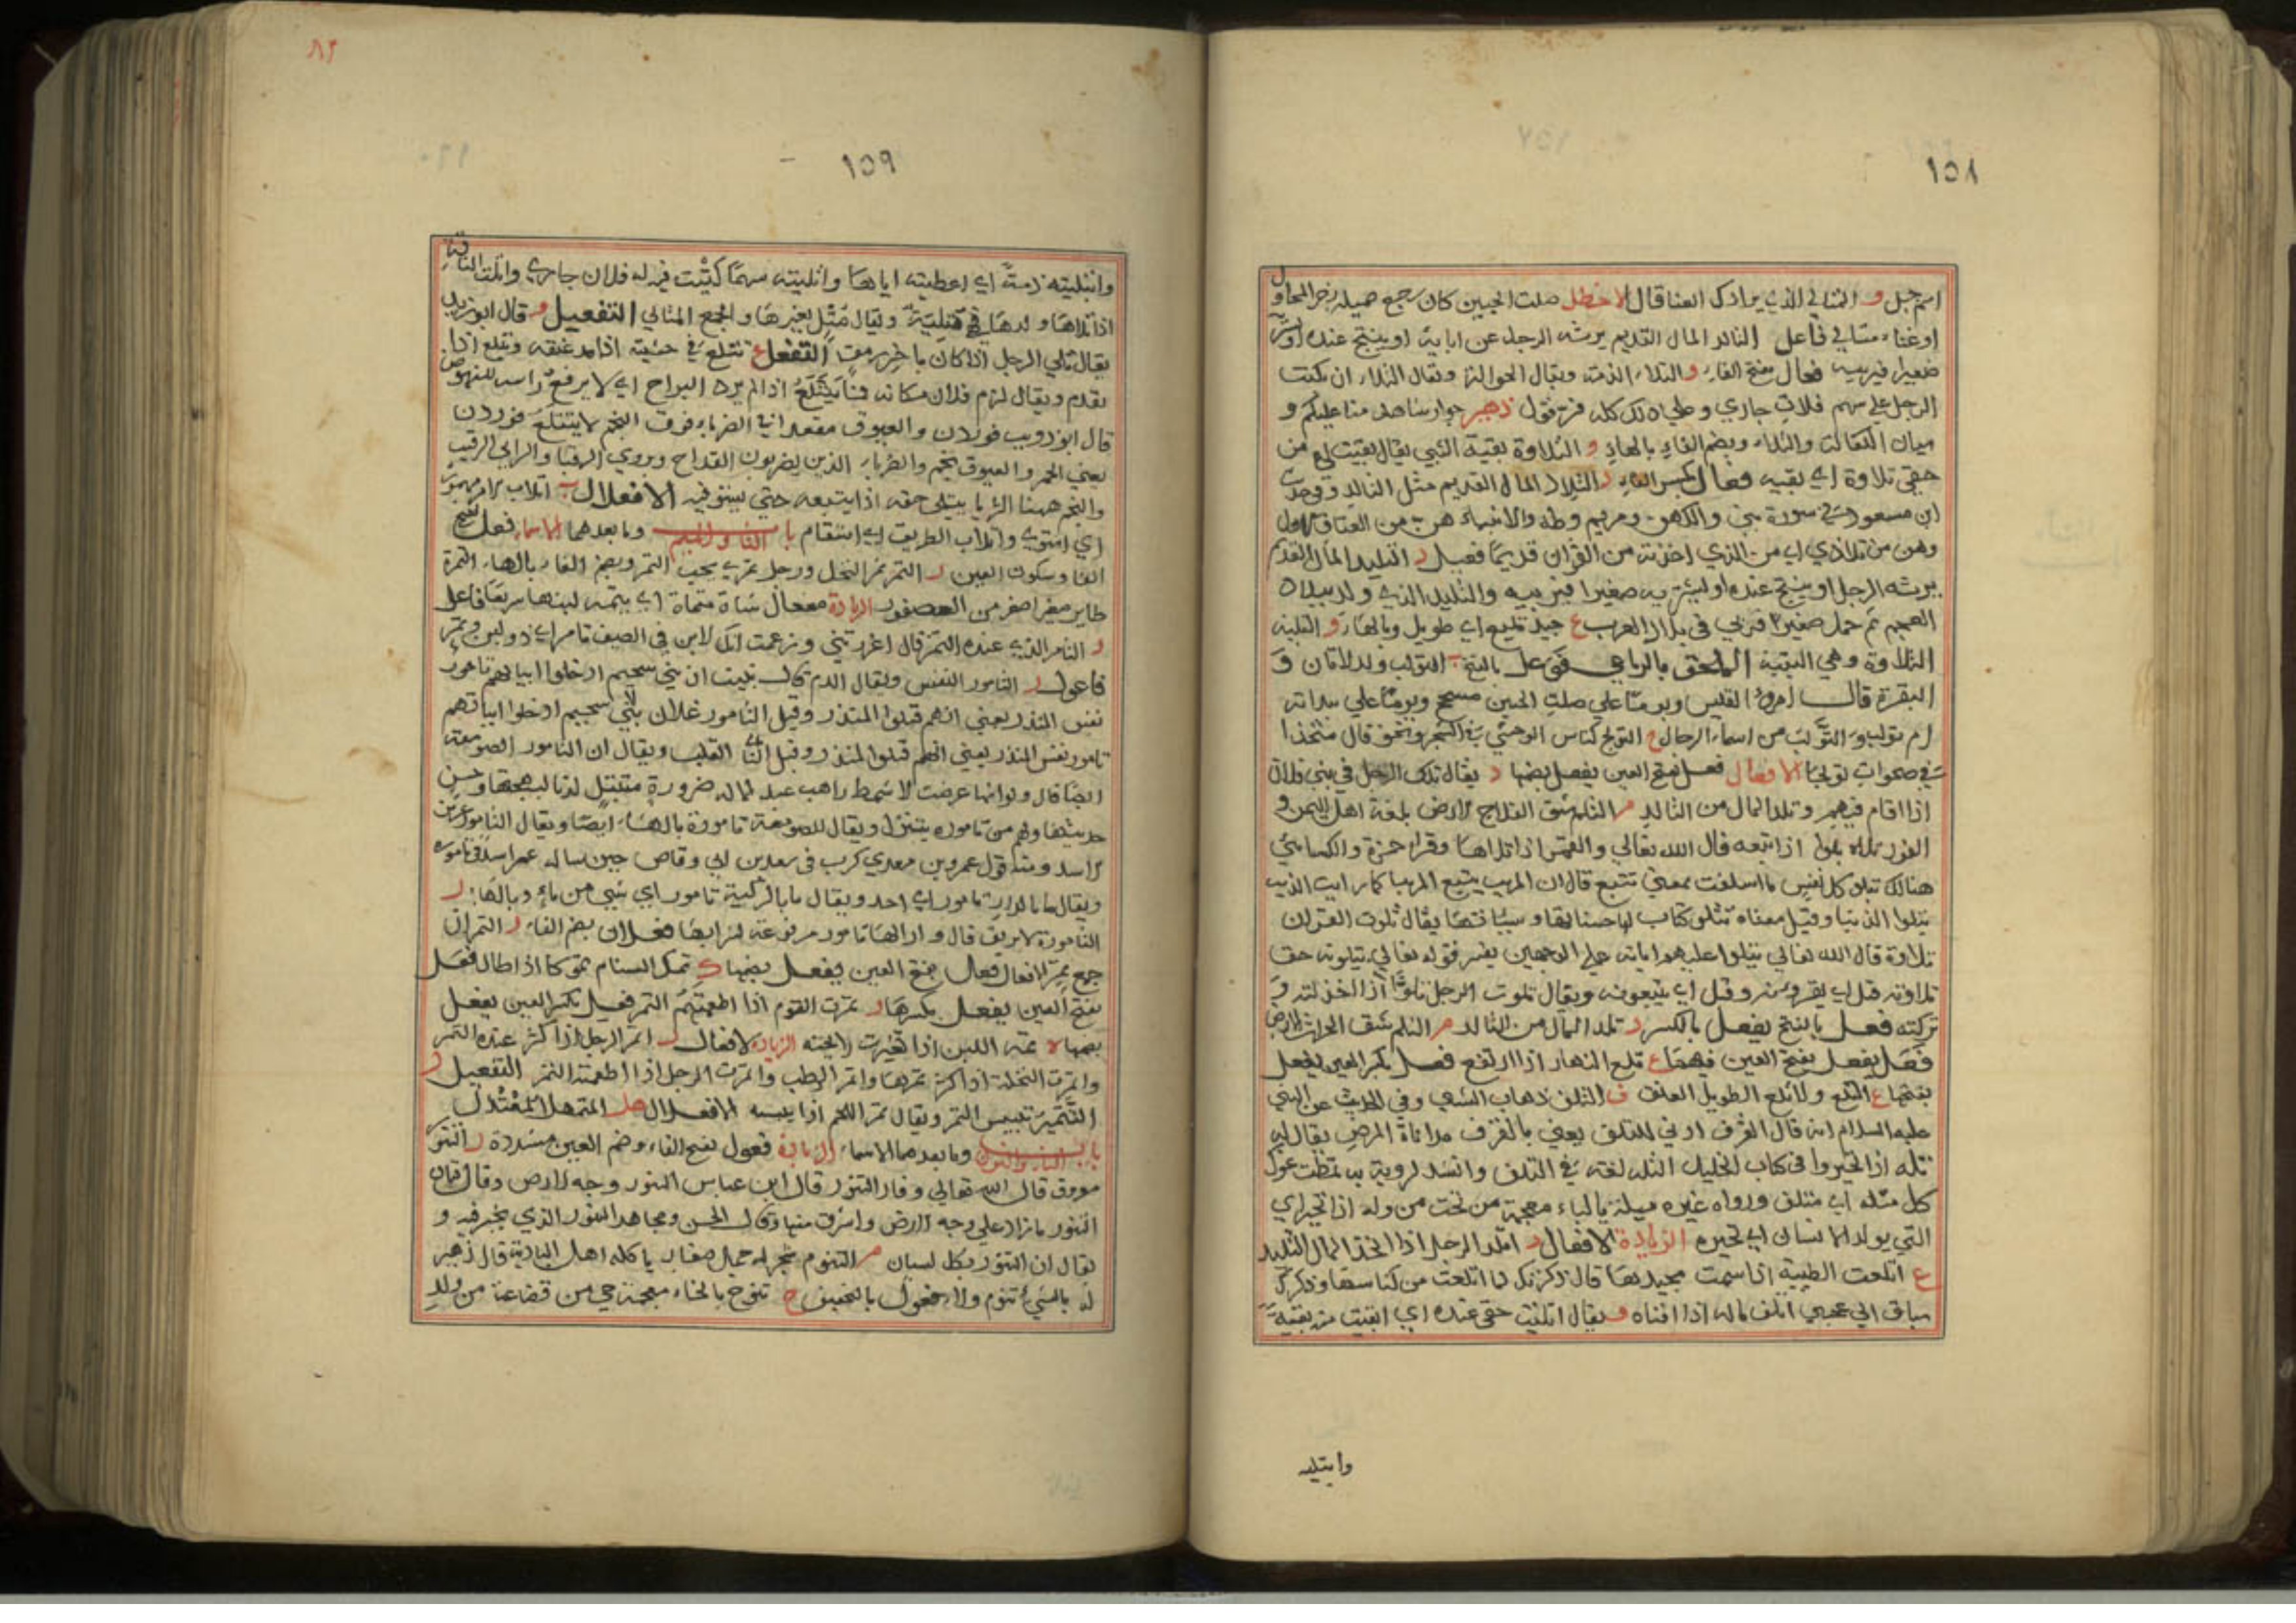 ١٥٨
اسم جبل و المتالي الذي يرادك الغناء قال الاخطل صلت الجبين كان رجع صهيله زجر المحاول
او غناء متالي فاعل التالد المال القديم يرثه الرجل عن ابايه او ينتج عنده او يشتريه
صغيرا فيربيه فعال بفتح الفاء و التلاء الذمة ويقال الحوالة ويقال التلاء ان يكتب
الرجل علي سهم فلان جاري وعلي ذلك كله فسر قول زهير جوار شاهد منا عليكم و
سيان الكفالة والتلاء وبضم الفاء بالهاء و التلاوة بقية الشي يقال بقيت لي من
حقي تلاوة اي بقيه فعال بكسر الفاء د التلاد المال القديم مثل التالد وفي حديث
ابن مسعود في سورة بني والكهف ومريم وطه والانبياء هن من العتاق الاول
وهن من تلادي اي من الذي اخذته من القرآن قديما فعيل د التليد المال القديم
يرثه الرجل او ينتج عنده او يشتريه صغيرا فيربيه والتليد الذي ولد ببلاد
العجم ثم حمل صغيرا فربي في بلاد العرب ع جيد تليع اي طويل وبالهاء و التلية
التلاوة وهي البقية الملحق بالرباعي فوعل بالفتح ب التولب ولد الاتان و
البقرة قال امرؤ القيس ويوما علي صلت الجبين مسحج ويوما علي بيدانة
ام تولب و التولب من اسماء الرجال ج التولج كناس الوحشي في الشجر ونحوه قال متخذا
في صعوات تولجا الافعال فعل بفتح العين يفعل بضمها د يقال تلد الرجل في بني فلان
اذا اقام فيهم وتلد المال من التالد م التلم شق الفلاح الارض بلغة اهل اليمن و
الغور تلاه يتلوا اذا تبعه قال الله تعالي والقمر اذا تلاها وقرا حمزة والكسائي
هنالك تتلو كل نفس ما اسلفت بمعني تتبع قال ان المريب يتبع المريبا كما رايت الذيب
يتلوا الذيبا وقيل معناه تتلو كتاب حسناتها وسيئاتها يقال تلوت القرآن
تلاوة قال الله تعالي يتلوا عليهم اياته علي الوجهين يفسر قوله تعالي يتلونه حق
تلاوته قيل اي يقرونه وقيل اي يتبعونه ويقال تلوت الرجل تلوا اذا خذلته و
تركته فعل بالفتح يفعل بالكسر د تلد المال من التالد م التلم شق الحراث الارض
فعل يفعل بفتح العين فيهما ع تلع النهار اذا ارتفع فعل بكسر العين يفعل
بفتحها ع التلع والاتلع الطويل العنق ف التلف ذهاب الشي وفي الحديث عن النبي
عليه السلام انه قال القرف ادني للتلف يعني بالقرف مداناة المرض يقال
تله اذا تحيروا في كتاب الخليل التله لغة في التلف وانشد لروبة به تمطت غول
كل متله اي متلف ورواه غيره ميله بالياء معجمة من تحت من وله اذا تحير اي
التي يوله الانسان اي تحيره الزيادة الافعال د اتلد الرجل اذا اتخذ المال التليد
ع اتلعت الظبية اذا سمت بجيدها قال ذكرتك لما اتلعت من كناسها وذكرك
سباق الي عجيب اتلف ماله اذا افناه و يقال اتليت حقي عنده اي ابقيت منه بقية
وابتليه
٨٢
١٥٩
واتليته ذمة اي اعطيته اياها واتليته سهما كتبت فيه له فلان جاري واتلت الناقة
اذا تلاها ولدها فهي متلية ويقال متل بغير هاء والجمع المتالي التفعيل و قال ابو زيد
يقال تلي الرجل اذا كان باخر رمق التفعل ع تتلع في مشيته اذا مد عنقه وتتلع اذا
تقدم ويقال لزم فلان مكانه فما يتتلع اذا لم يرد البراح اي لا يرفع راسه للنهوض
قال ابو ذويب فوردن والعيوق مقعد رابئ الضرباء فوق النجم لا يتتلع فوردن
يعني الحمر والعيوق نجم والضرباء الذين يضربون القداح ويروي الرقبا والرابي الرقيب
والنجم ههنا الثريا يتتلي حقه اذا يتبعه حتي يستوفيه الافعلال ب اتلاب الامر مهموز
اي استوي واتلاب الطريق اي استقام باب التاء والميم وما بعدهما الاسماء فعل بفتح
الفا وسكون العين ر التمر ثمر النخل ورجل تمري يحب التمر وبضم الفاء بالهاء التمرة
طاير صغير اصغر من العصفور الزيادة مفعال شاة متمام اي يتم لبنها سريعا فاعل
ر التامر الذي عنده التمر قال اغررتني وزعمت انك لابن في الصيف تامر اي ذو لبن وتمر
فاعول ر التامور النفس ويقال الدم قال نبئت ان بني سحيم ادخلوا ابياتهم تامور
نفس المنذر يعني انهم قتلوا المنذر وقيل التامور غلاف بني سحيم ادخلوا ابياتهم
تامور نفس المنذر يعني انهم قتلوا المنذر وقيل القلب ويقال ان التامور الصومعة
ايضا قال ولو انها عرضت لاشمط راهب عبد الاله ضرورة متبتل لدنا لبهجتها وحسن
حديثها ولهم من تاموره بتنزل ويقال للصومعة تامورة بالهاء ايضا ويقال التامور عرين
الاسد ومنه قول عمرو بن معدي كرب في سعد بن ابي وقاص حين ساله عمر اسد في تامورته
ويقال ما بالدار تامور اي احد ويقال ما بالركية تامور اي شيي من ماء وبالهاء ر
التامورة الابريق قال واذا لها تامورة مرفوعة لشرابها فعلان بضم الفاء ر التمران
جمع تمر الافعال فعل بفتح العين يفعل بضمها ك تمك السنام تموكا اذا طال فعل
بفتح العين يفعل بكسرها ر تمرت القوم اذا اطعمتهم التمر فعل بكسر العين يفعل
بفتحها ه تمه اللبن اذا تغيرت رايحته الزيادة الافعال ر اتمر الرجل اذا كثر عنده التمر
واتمرت النخلة اذا كثر تمرها واتمر الرطب واتمرت الرجل اذا اطعمته التمر التفعيل ر
التتمير تيبيس التمر ويقال تمر اللحم اذا يبسه الافعلال هل المتمهل المعتدل
باب التاء والنون وما بعدهما الاسماء الزيادة فعول بفتح الفاء وضم العين مشددة ر التنور
معروف قال الله تعالي وفار التنور قال ابن عباس التنور وجه الارض وقال قتادة
التنور ما زاد علي وجه الارض واشرف منها وقال الحسن ومجاهد التنور الذي يخبز فيه و
يقال ان التنور بكل لسان م التنوم شجر له حمل صغار ياكله اهل البادية قال زهير
له بالسي تنوم والاء فعول بالتخفيف خ تنوخ بالخاء معجمة حي من قضاعة من ولد